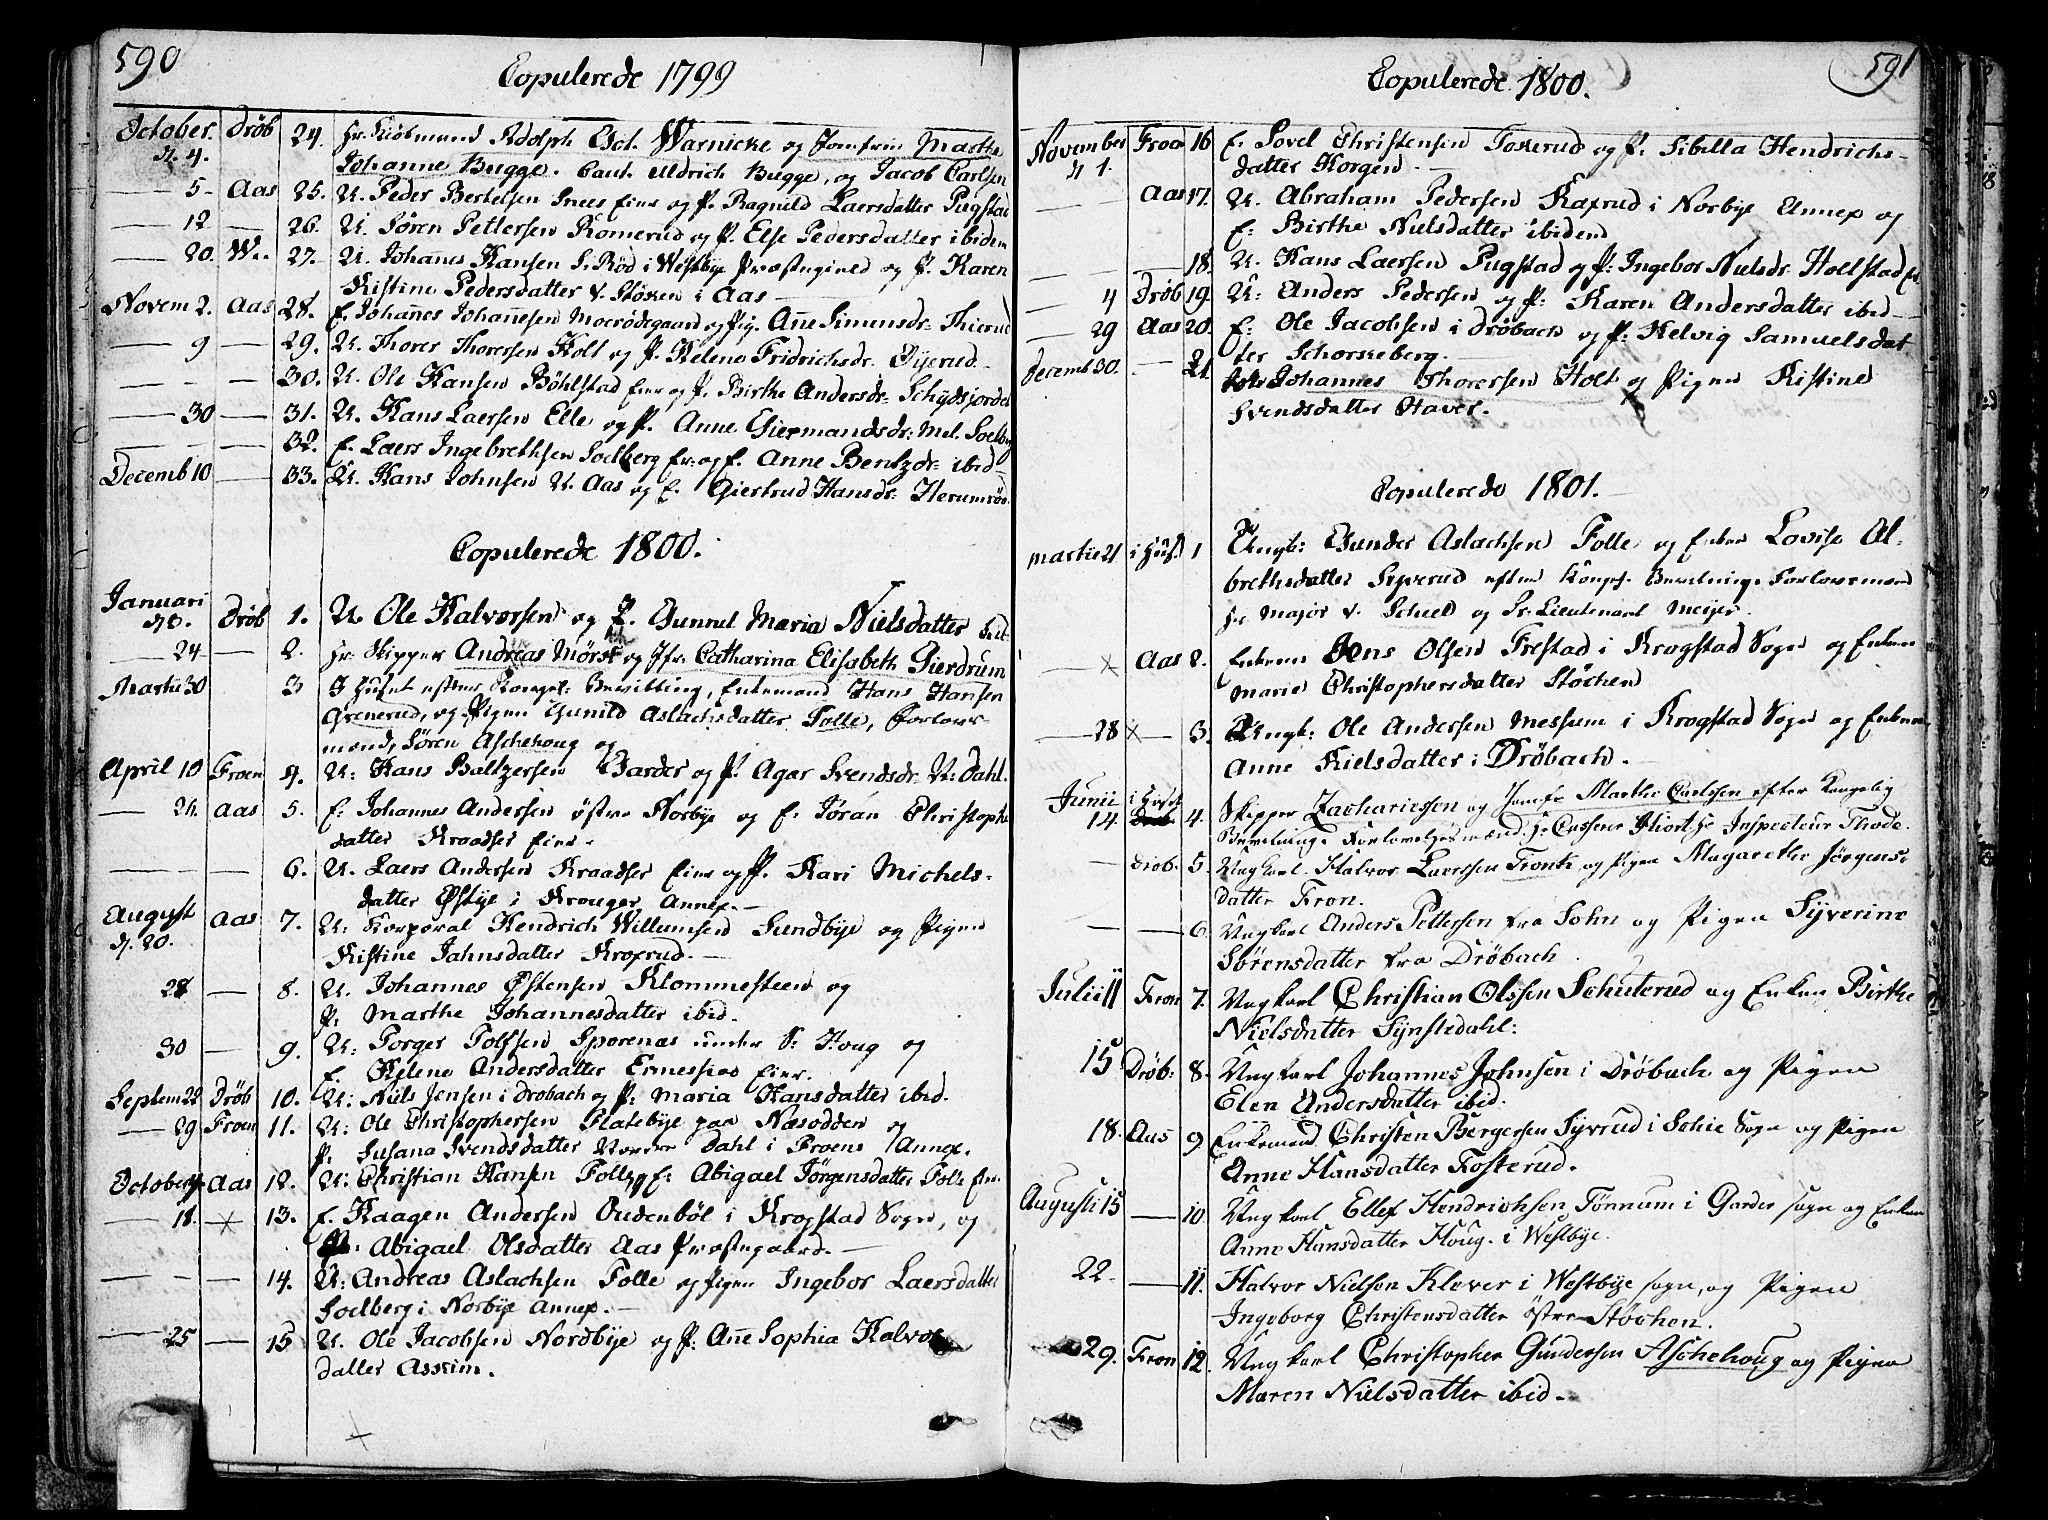 590
Copulerede 1799
October. Dröb 24. Hr. Kiöbmand Adolph Warnicke og Jomfru Marthe
d. 4. Johanne Bugge. Caut. Uldrich Bugge, og Jacob Carlsen
— 5 — Aas 25. U. Peder Bertelsen Snees Eier og P. Ragnild Laersdatter Pugstad
— 12 — 26. U. Sören Pettersen Romerud og P. Else Pedersdatter ibidem
— 20. W. 27. U. Johanes Hansen S: Röd i Westbye Præstegield og P. Karen
Kistine Pedersdatter v. Stöken i Aas
Novem 2. Aas 28. E. Johañes Johañesen Moerödegaard og Pig. Añe Simensdr: Thierud
— 9 — 29. U. Thorer Thorersen Holt og P. Helene Fridrichsdr. Öyerud
— — — 30. U. Ole Hansen Böhlstad Eier og P. Birthe Andersdr: Schydsjordet
— 30 — 31. U. Hans Laersen Elle og P. Anne Giermandsdr: Mel. Soelberg
— — 32. E. Laers Ingebrethsen Soelberg Eier og E. Anne Bentzdr: ibid
Decemb 10 — 33. U. Hans Johnsen N. Aas og E. Giertrud Hansdr: Herumröd
Copulerede 1800.
Januari
d. 3. Dröb 1. U. Ole Halvorsen og P. Gunnul Maria Nielsdatter ibid
— 24 — 2. Hr. Skipper Andreas Mörst og Jfr. Catharina Elisabeth Gierdrum
Martii 30 3 I Huset efter Konget: Bevilling, Enkemand Hans Hansen
Grenerud, og Pigen Gunild Aslachsdatter Folle, Forlover
mænd, Sören Aschehoug og
April 10 Froen 4. U: Hans Baltzersen Garder og P. Agar Svendsdr. N: Dahl.
— 26. Aas 5. E: Johannes Andersen östre Norbye og E: Jöran Christophe
datter Kraadser Eier.
— — 6. U. Laers Andersen Kraadser Eier og P. Kari Michels-
datter Östbye i Kroger Annex.—
August Aas 7. U: Korporal Hendrich Willumsen Sundbye og Pigen
d. 20. Kistine Jahnsdatter Kroxrud.—
28 — 8. U. Johannes Östensen Klommesteen og
P: Marthe Johannesdatter ibid.
30 — 9. U: Torger Tolfsen Sporenæs under S: Houg og
E. Helene Andersdatter Ermessioe Eier.
Septem 28 Dröb 10. U: Niels Jensen i Drobach og P: Maria Hansdatter ibid.
— 29 Froen 11. U: Ole Christophersen Flatebye paa Næsodden og
P: Susana Svendsdatter Nordre Dahl i Froens Annex.
October Aas 12. U: Christian Hansen Folle og E: Abigael Jörgensdatter Folle Eier
— 18. × 13. E. Haagen Andersen Oudenböl i Krogstad Sogn, og
P: Abigael Olsdatter Aas Præstegaard.—
— — — 14. U: Andreas Aslachsen Folle og Pigen Ingebor Laersdatter
Soelberg i Norbye Annex.—
— 25 — 15 U. Ole Jacobsen Nordbye og P: Añe Sophia Halvors
datter Asskim.
591
Copulerede 1800.
November Froen 16 E. Sovel Christensen Toserud og P. Sibella Hendrichs-
d 1. datter Korgen.—
— Aas 17. U. Abraham Pedersen Kaxrud i Norbye Annex og
E: Birthe Nielsdatter ibidem
— — 18. U. Hans Laersen Pugstad og P: Ingebor Nielsdr. Holstad
— 4 Dröb 19. U: Anders Pedersen og P: Karen Andersdatter ibid—
— 29 Aas 20. E: Ole Jacobsen i Dröbach og P. Helvig Samuelsdat
ter Schorkeberg.
Decemb 30. — 21. Johannes Thorersen Holt og Pigen Kistine
Svendsdatter Haver.
Copulerede 1801.
Martii 21 i Huset 1 Ungk: Gunder Aslachsen Folle og Enken Lovise Al-
brethsdatter Syverud efter Kongl. Bevilning. Forlovermænd
Hr Major v. Scheel og Pr: Lieutenant Meyer.
— × Aas 2. Enkem Jens Olsen Frestad i Krogstad Sogn og Enken
Marie Christophersdatter Stöchen
— 28 × — 3. Ungk: Ole Andersen Messum i Krogstad Sogn og Enken
Anne Nielsdatter i Dröbach.—
Junii i Huset
14. 4. Skipper Zachariessen og Jomfr Marthe Carlsen efter Kongelig
Bevilning. Forlovelsesmænd Hr Hiort Hr Inspecteur Thode.
— Dröb. 5. Ungkarl. Halvor Laerssen Fronte og Pigen Magarethe Jörgens-
datter Fron.
— — 6. Ungkarl Anders Pettersen fra Sohn og Pigen Syverine
Sörensdatter fra Dröbach.
Julii 11 Fron 7. Ungkarl Christian Olssen Schuterud og Enken Birthe
Nielsdatter Synstedahl:
15 Dröb: 8. Ungkarl Johannes Johnsen i Dröbach og Pigen
Elen Andersdatter ibid.
18. Aas 9 Enkemand Christen Bergersen Syvrud i Schie Sogn og Pigen
Anne Hansdatter Fosterud.
Augusti 15 — 10. Ungkarl Ellef Hendrichsen Tönnum i Garder Sogn og Enken
Anne Hansdatter Houg. i Westbye.
22. — 11. Halvor Nielsen Klever i Westbye sogn, og Pigen
Ingeborg Christensdatter östre Stöchen.
29. Fron 12. Ungkarl Christopher Gundersen Aschehoug og Pigen
Maren Nielsdatter ibid.—